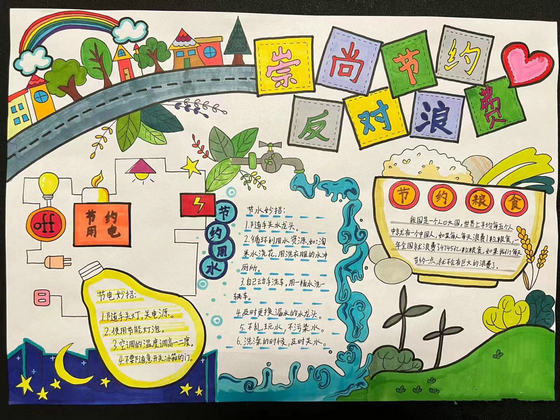 崇尚节约
反对浪费
节约用水
节水妙招:
1.随手关水龙头。
2.循环利用水资源,如淘
米水浇花,用洗衣服的水冲
厕所。
3.自己动手洗车,用一桶水洗一
辆车。
4.及时更换漏水的水龙头。
5.不乱玩水,不污染水。
6.洗澡的时候,及时关水。
节约粮食
我国是一个人口大国,世界上平均每五个人
中就有一个中国人,如果每人每天浪费1粒粮食,
off
节约
用电
节电妙招:
1.随手关灯,关电源。
2.使用节能灯泡。
3.空调的温度调高一度。
4.不要随意开关冰箱的门。